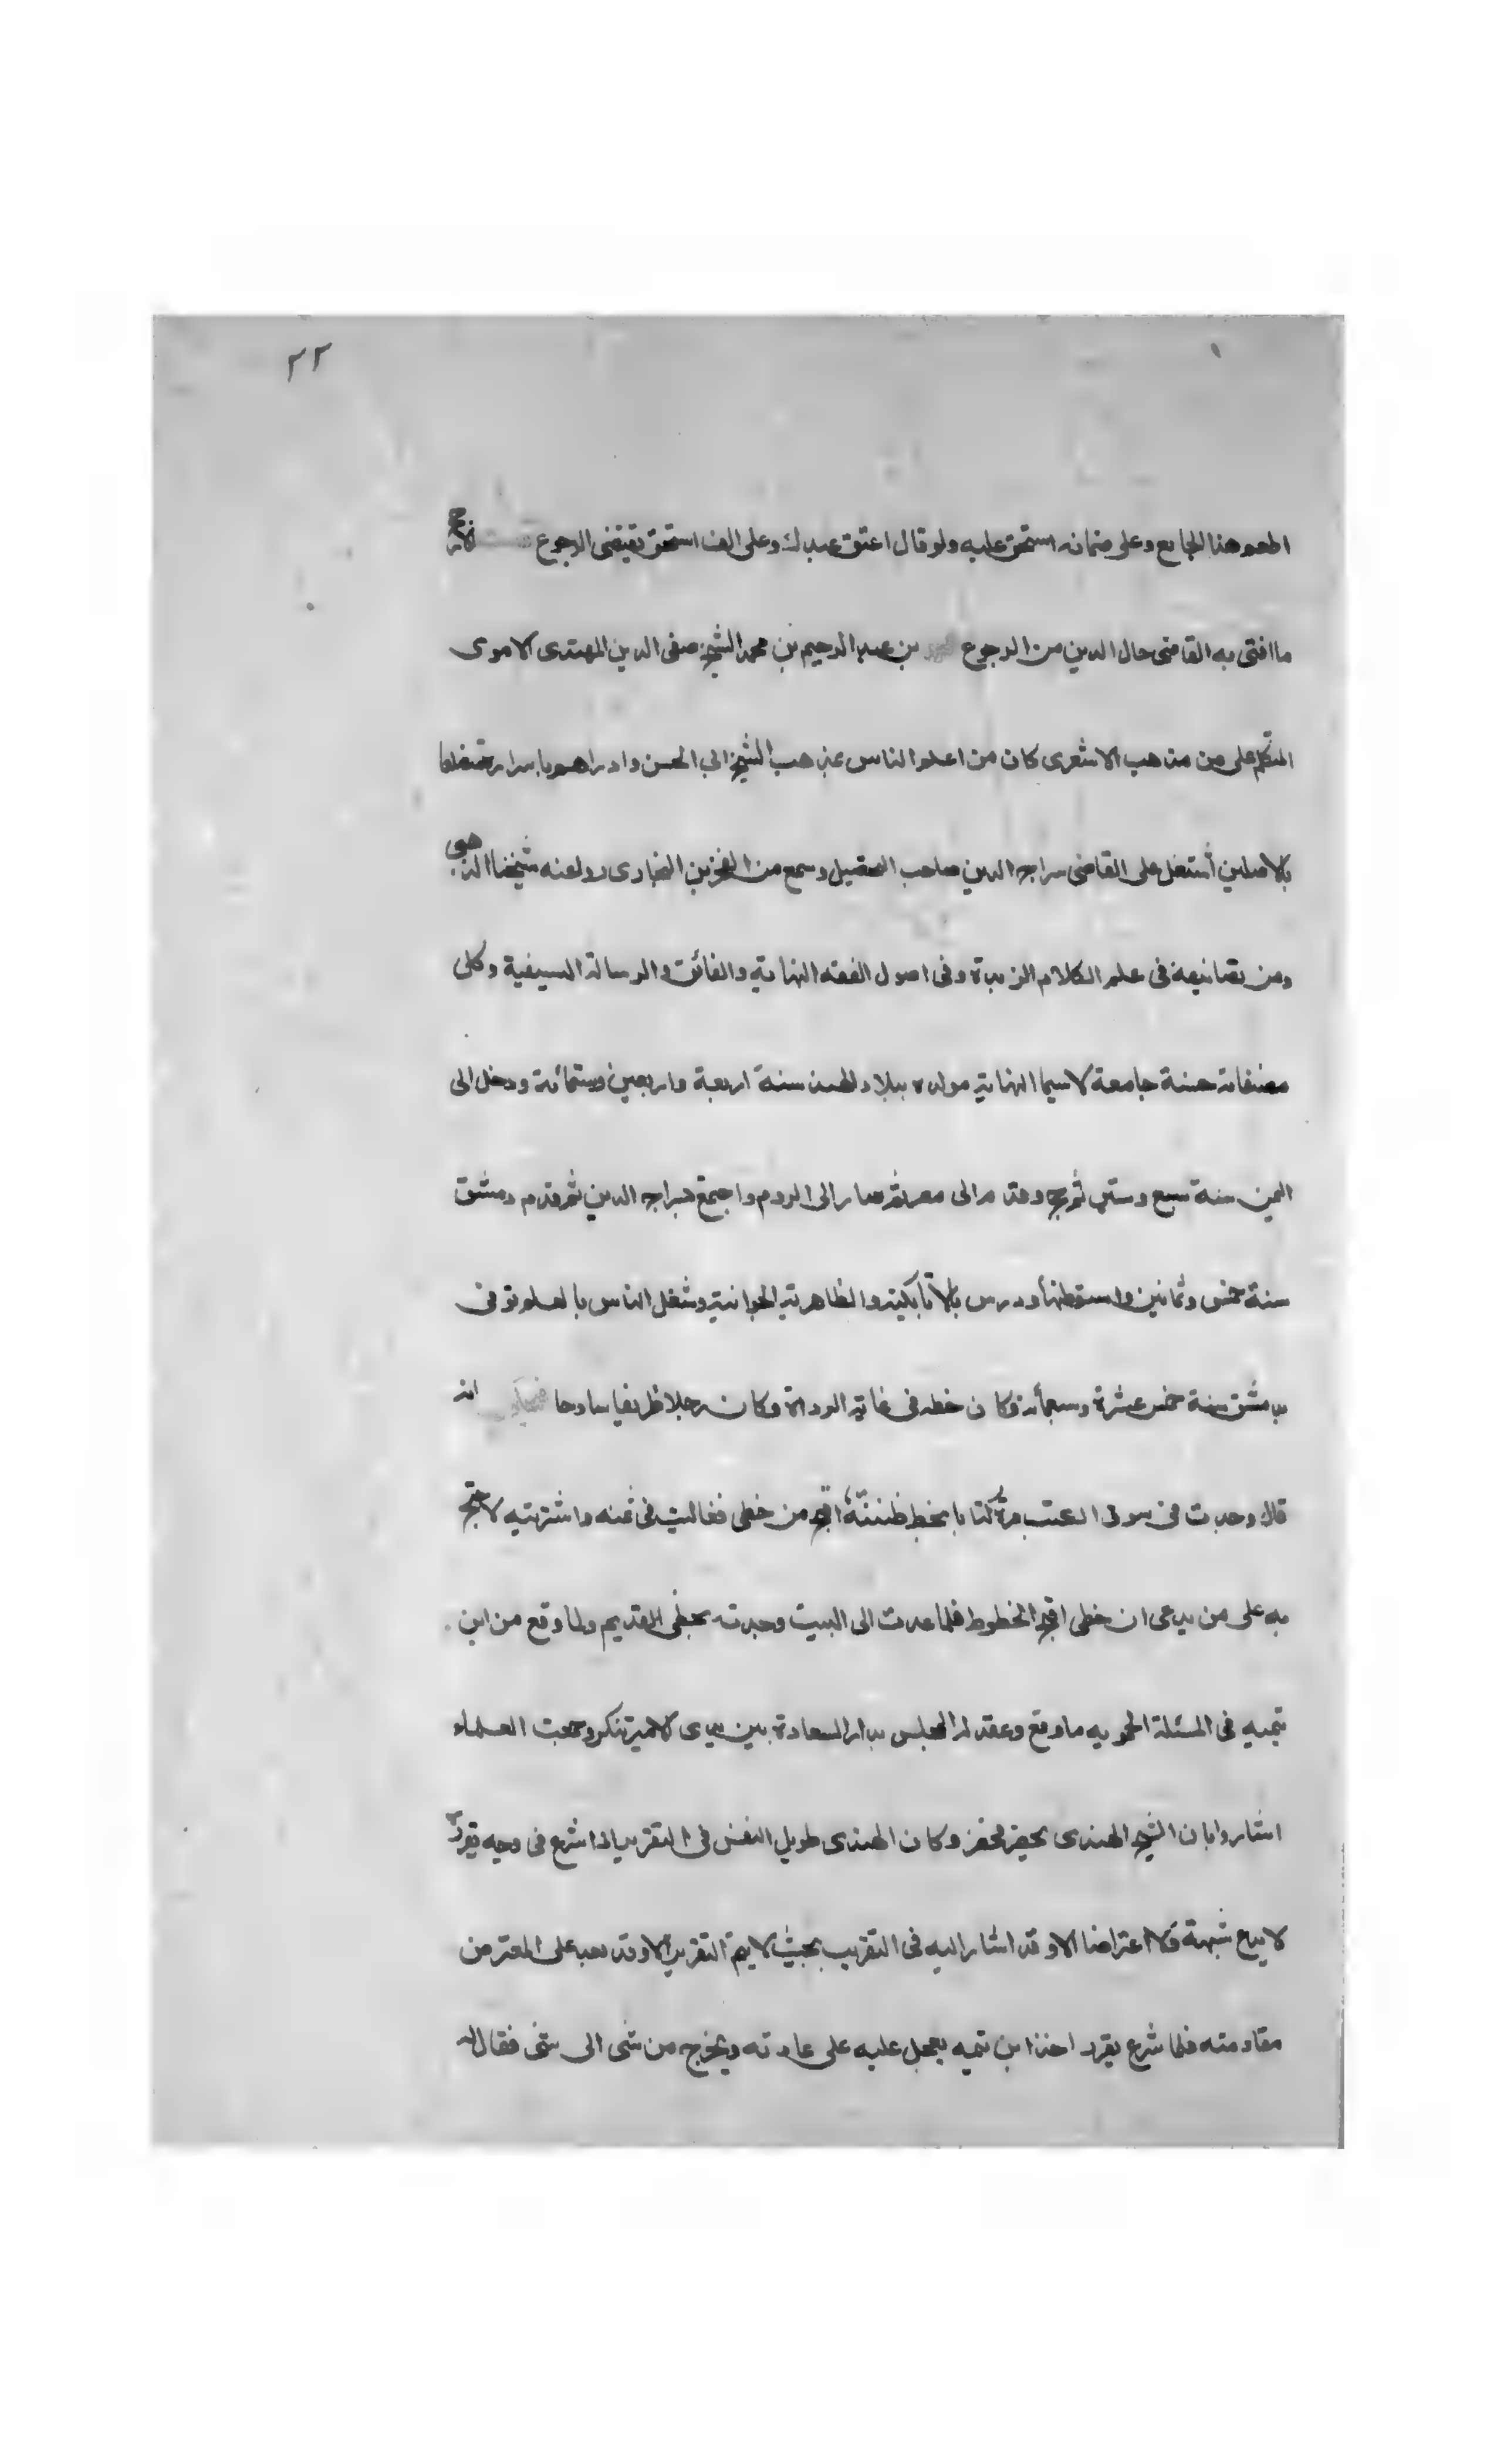 ٢٢
اطعم هذا الجايع وعلى ضمانه استحق عليه ولو قال اعتق عبدك وعلى الف استحق يقتضى الرجوع
ما افتى به القاضى حال الدين من الرجوع بن عبد الرحيم بن محمد الشيخ صفى الدين الهندى الاموى
المتكلم على من مذهب الاشعرى كان من اعلم الناس بمذهب الشيخ ابى الحسن وادراهم باسراره متضلعا
بالاصلين أشتغل على القاضى سراج الدين صاحب التحصيل وسمع من الفخر بن البخارى روى عنه شيخنا الذهبى
ومن تصانيفه فى علم الكلام الزبدة وفى اصول الفقه النهاية والفائق والرسالة السيفية وكل
مصنفاته حسنة جامعة لاسيما النهاية مولده ببلاد الهند سنة اربعة واربعين وستمائة ودخل الى
اليمن سنة سبع وستين ثم حج وقدم الى مصر ثم صار الى الروم واجتمع بسراج الدين ثم قدم دمشق
سنة خمس وثمانين واستوطنها ودرس بالأتابكية والظاهرية الجوانية وشغل الناس بالعلم توفى
بدمشق سنة خمس عشرة وسبعمأئة وكان خطه فى غاية الرداة وكان رجلا ظريفا ساذجا انه
قال وجدت فى سوق الكتب مرة كتابا بخط ظننتُهُ اقبح من خطى فغاليت فى ثمنه واشتريته لاحتج
به على من يدعى ان خطى اقبح الخطوط فلما عدت الى البيت وجدته بخطى القديم ولما وقع من ابن
تيميه فى المسئلة الحمويه ما وقع وعقد له المجلس بدار السعادة بين يدى الامير تنكز وجمعت العلماء
اشاروا بان الشيخ الهندى يحضر فحضر وكان الهندى طويل النفس فى التقرير اذا شرع فى وجه يقرره
لا يدع شبهة ولا اعتراضا الا وقد اشار اليه فى التقريب بحيث لا يتم التقرير الا وقد بعد على المعترض
مقاومته فلما شرع يقرر اخذ ابن تيميه يعجل عليه على عادته ويخرج من شى الى شى فقال له